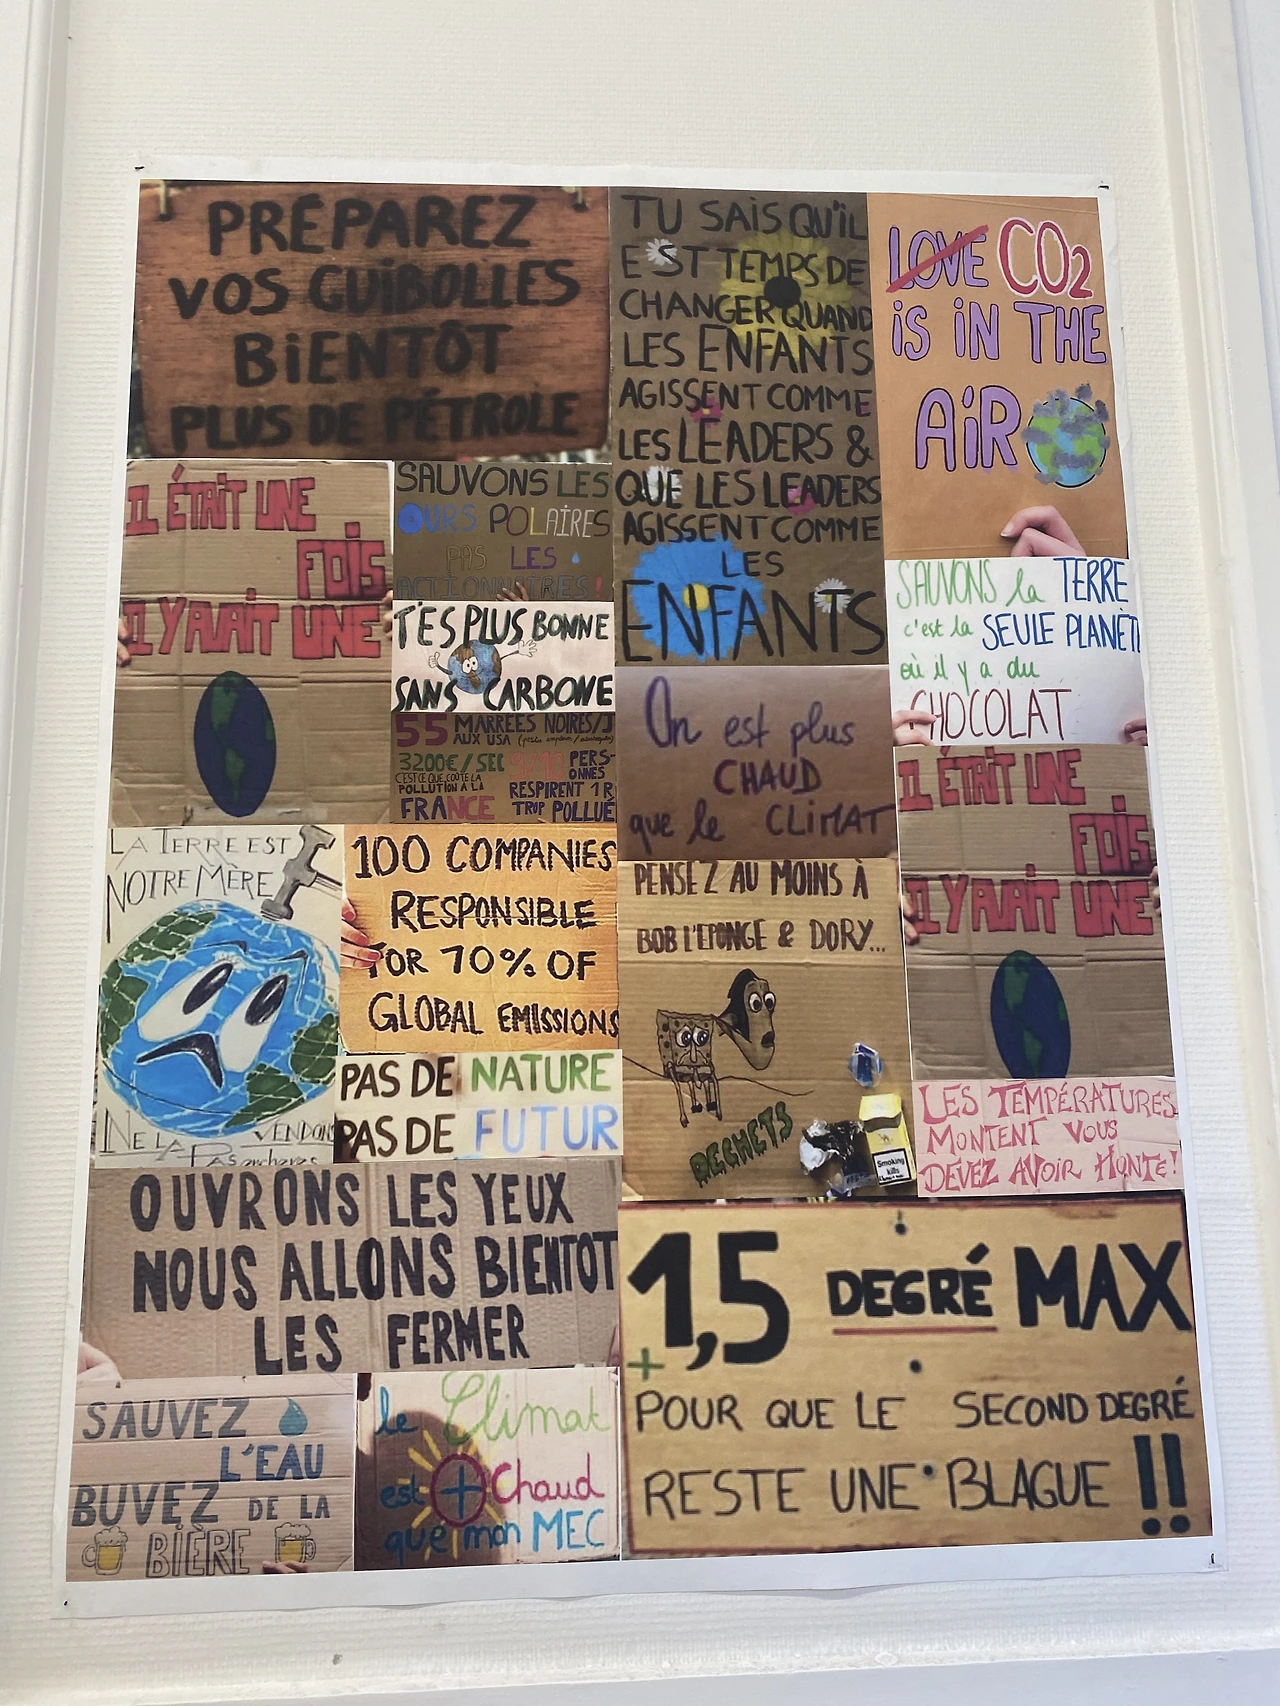 PRÉPAREZ
VOS GUIBOLLES
BIENTÔT
PLUS DE PÉTROLE
TU SAIS QU'IL
EST TEMPS DE
CHANGER QUAND
LES ENFANTS
AGISSENT COMME
LES LEADERS &
QUE LES LEADERS
AGISSENT COMME
LES
ENFANTS
LOVE CO2
iS iN THE
AiR
IL ÉTAIT UNE
FOIS
IL Y AVAIT UNE
SAUVONS LES
OURS POLAIRES
PAS LES
ACTIONNAIRES!
T'ES PLUS BONNE
SANS CARBONE
55 MARRÉES NOIRES/J
AUX USA
3200€/SEC
C'EST CE QUE COÛTE LA
POLLUTION À LA
FRANCE
9/10 PERS-
ONNES
RESPIRENT 1R
TROP POLLUÉ
SAUVONS la TERRE
c'est la SEULE PLANÈT
où il y a du
CHOCOLAT
On est plus
CHAUD
que le CLIMAT
IL ÉTAIT UNE
FOIS
IL Y AVAIT UNE
LA TERRE EST
NOTRE MÈRE
NE LA VENDONS
PAS
100 COMPANIES
RESPONSIBLE
FOR 70% OF
GLOBAL EMISSIONS
PENSEZ AU MOINS À
BOB L'EPONGE & DORY...
DECHETS
Smoking
kills
PAS DE NATURE
PAS DE FUTUR
LES TEMPÉRATURES
MONTENT VOUS
DEVEZ AVOIR HONTE!
OUVRONS LES YEUX
NOUS ALLONS BIENTOT
LES FERMER
1,5 DEGRÉ MAX
+
POUR QUE LE SECOND DEGRÉ
RESTE UNE BLAGUE !!
SAUVEZ
L'EAU
BUVEZ DE LA
BIÈRE
le Climat
est + Chaud
que mon MEC